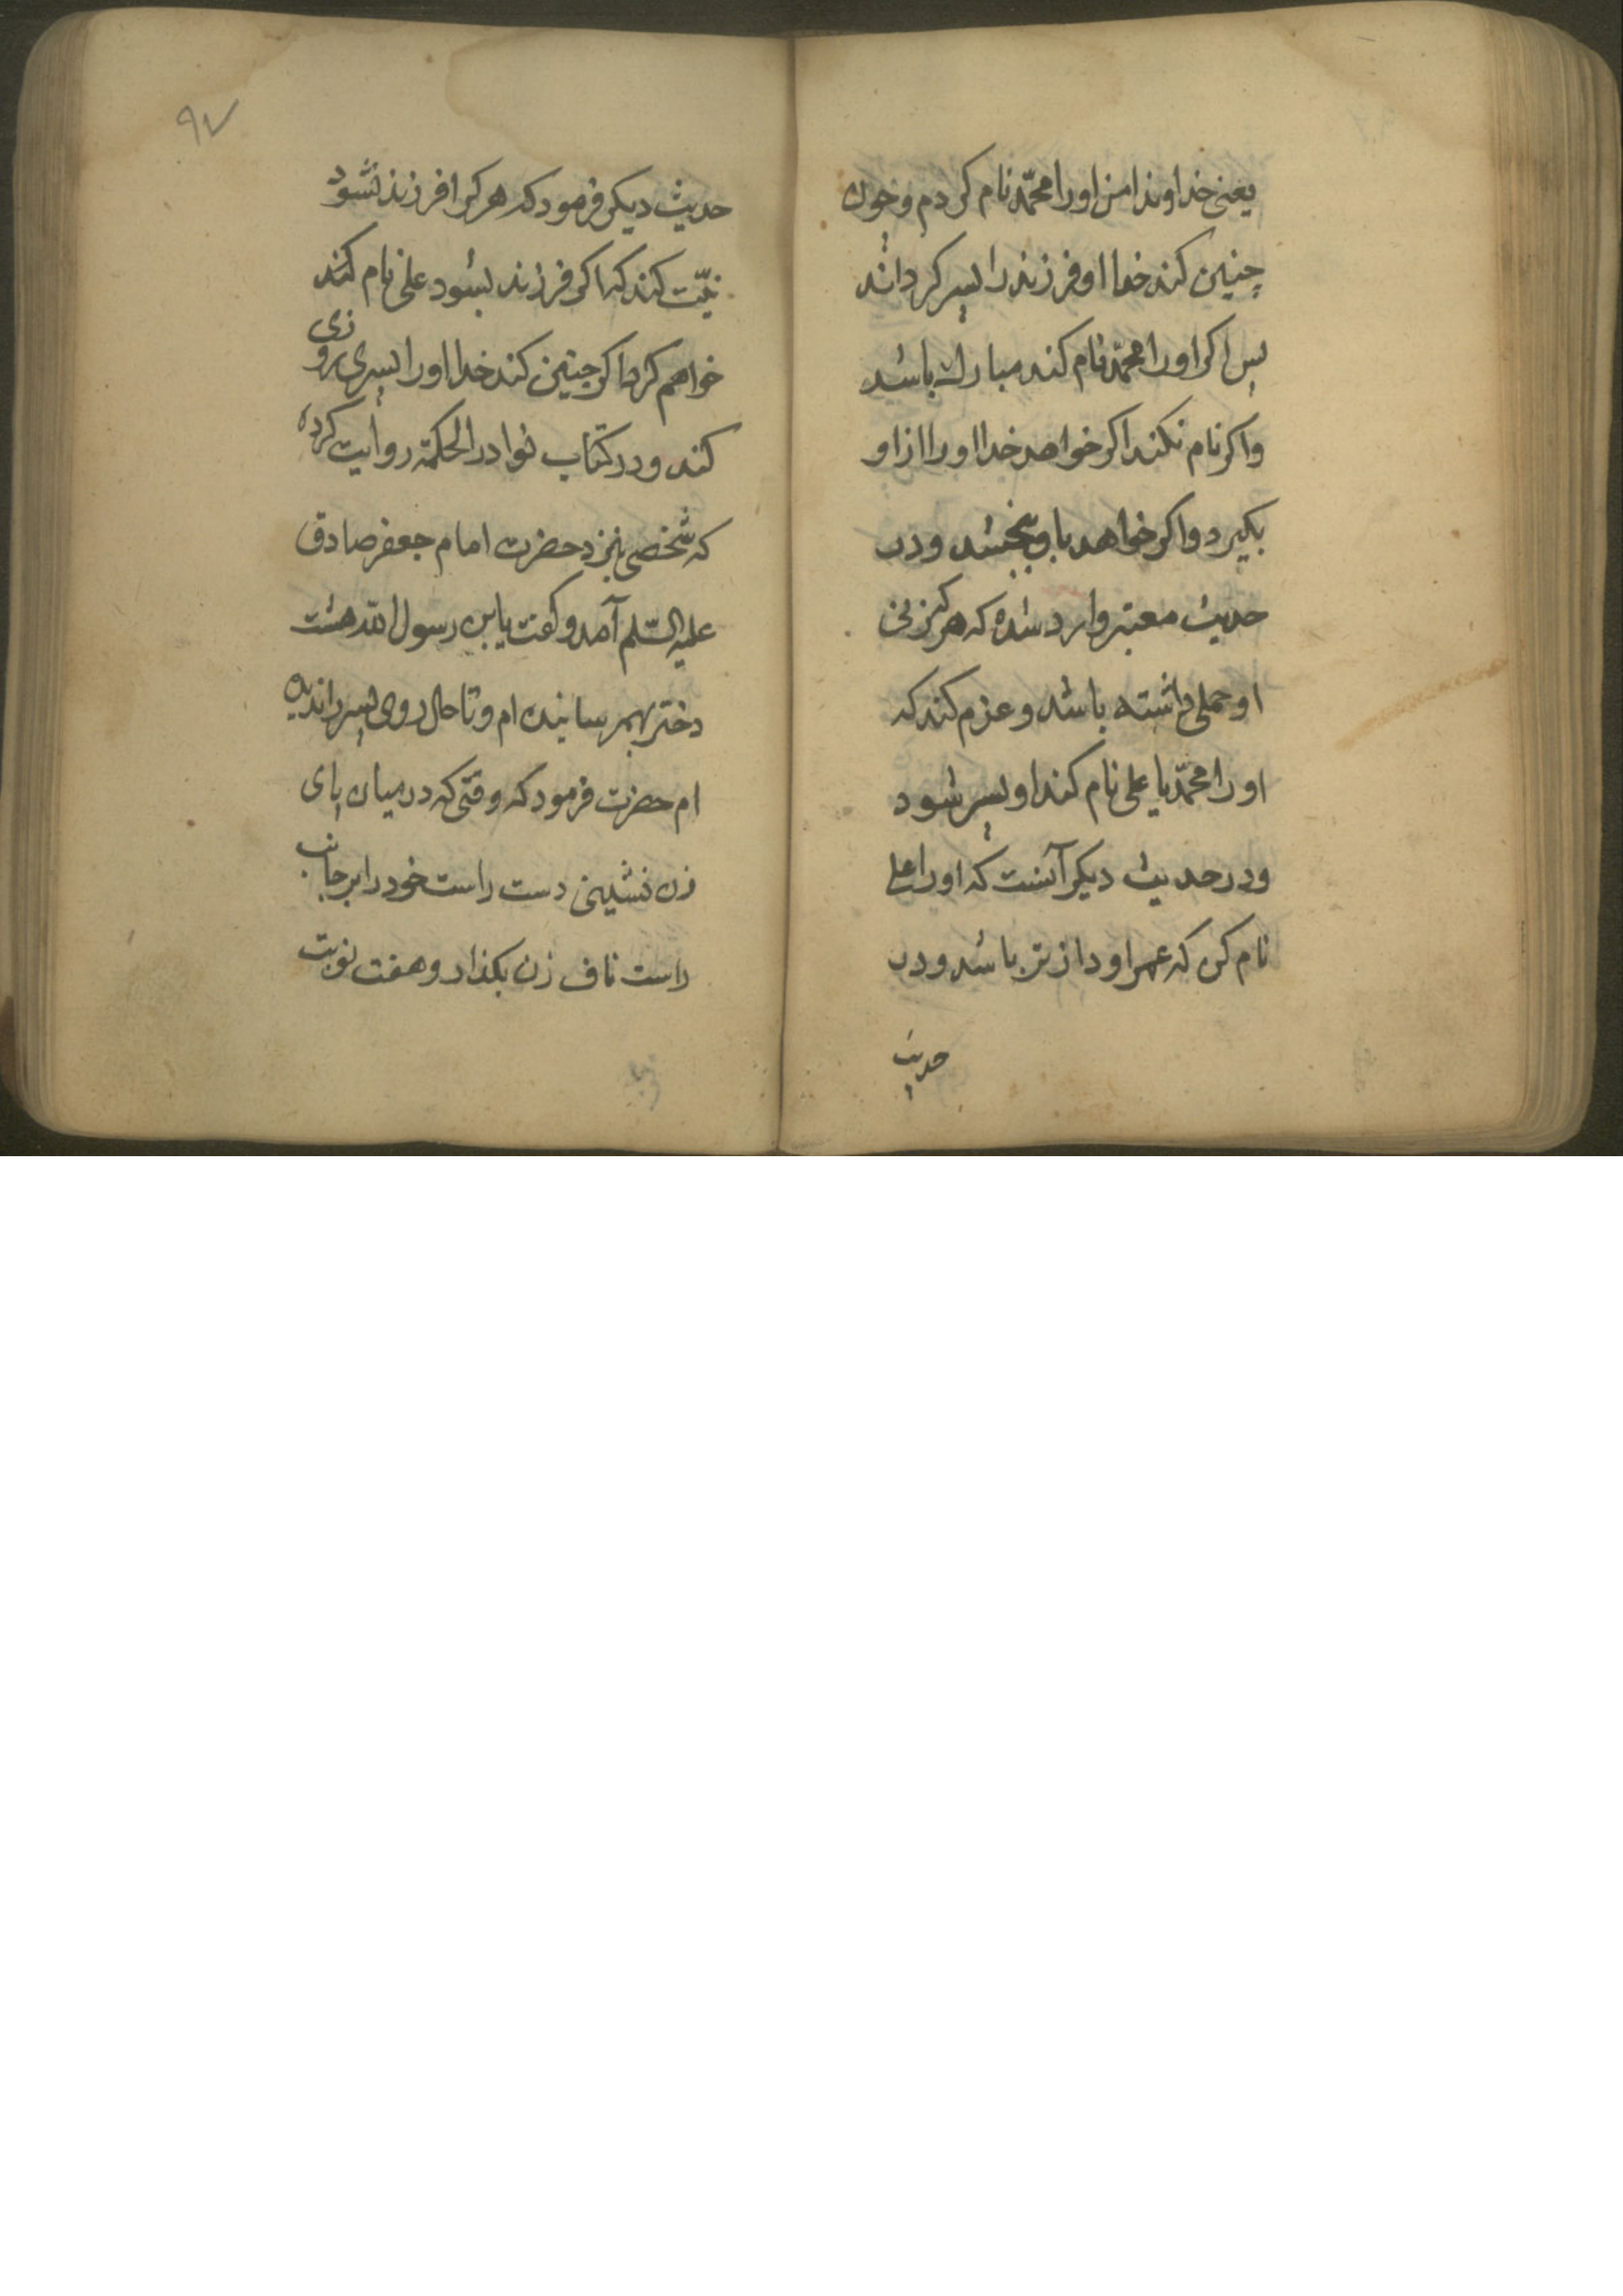 یعنی خداوندا من اورا محمّد نام کردم و چون
چنین کند خدا او فرزند را پسر کرداند
پس اکر اورا محمّد نام کند مبارک باشد
و اکر نام نکند اکر خواهد خدا اورا از او
بکیرد و اکر خواهد باو بخشد و در
حدیث معتبر وارد شده که هرکه زنی
او حملی داشته باشد و عزم کند که
اورا محمّد یا علی نام کند او پسر شود
و در حدیث دیکر آنست که اورا علی
نام کن که عمر او درازتر باشد و در
حدیث
۹۷
حدیث دیکر فرمود که هرکرا فرزند نشود
نیّت کند که اکر فرزند بشود علی نام کنند
خواهم کرد اکر چنین کند خدا اورا پسری روزی
کند و در کتاب نوادر الحکمة روایت کرده
که شخصی بنزد حضرت امام جعفر صادق
علیه السّلم آمد و کفت یابن رسول الله هشت
دختر بهم رسانیده ام و تا حال روی پسر را ندیده
ام حضرت فرمود که وقتی که در میان پای
زن نشینی دست راست خود را بر جانب
راست ناف زن بکذار و هفت نوبت